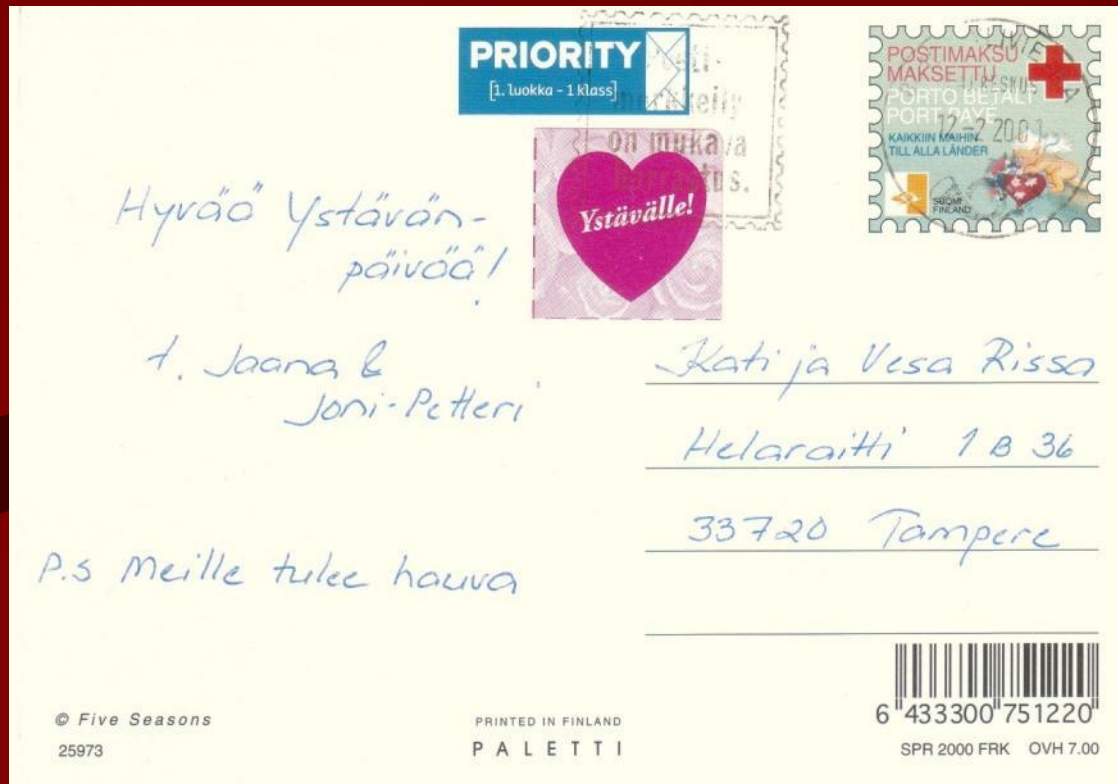 PRIORITY
[1. luokka - 1 klass]
merkkeily
on mukava
POSTIMAKSU
MAKSETTU
PORTO BETALT
PORT PAYÉ
KAIKKIIN MAIHIN
TILL ALLA LÄNDER
SUOMI
FINLAND
12.-2.2001
Ystävälle!
Hyvää Ystävän-
päivää!
t. Jaana &
Joni-Petteri
P.s Meille tulee hauva
Kati ja Vesa Rissa
Helaraitti 1 B 36
33720 Tampere
© Five Seasons
25973
PRINTED IN FINLAND
PALETTI
6 433300 751220
SPR 2000 FRK OVH 7.00